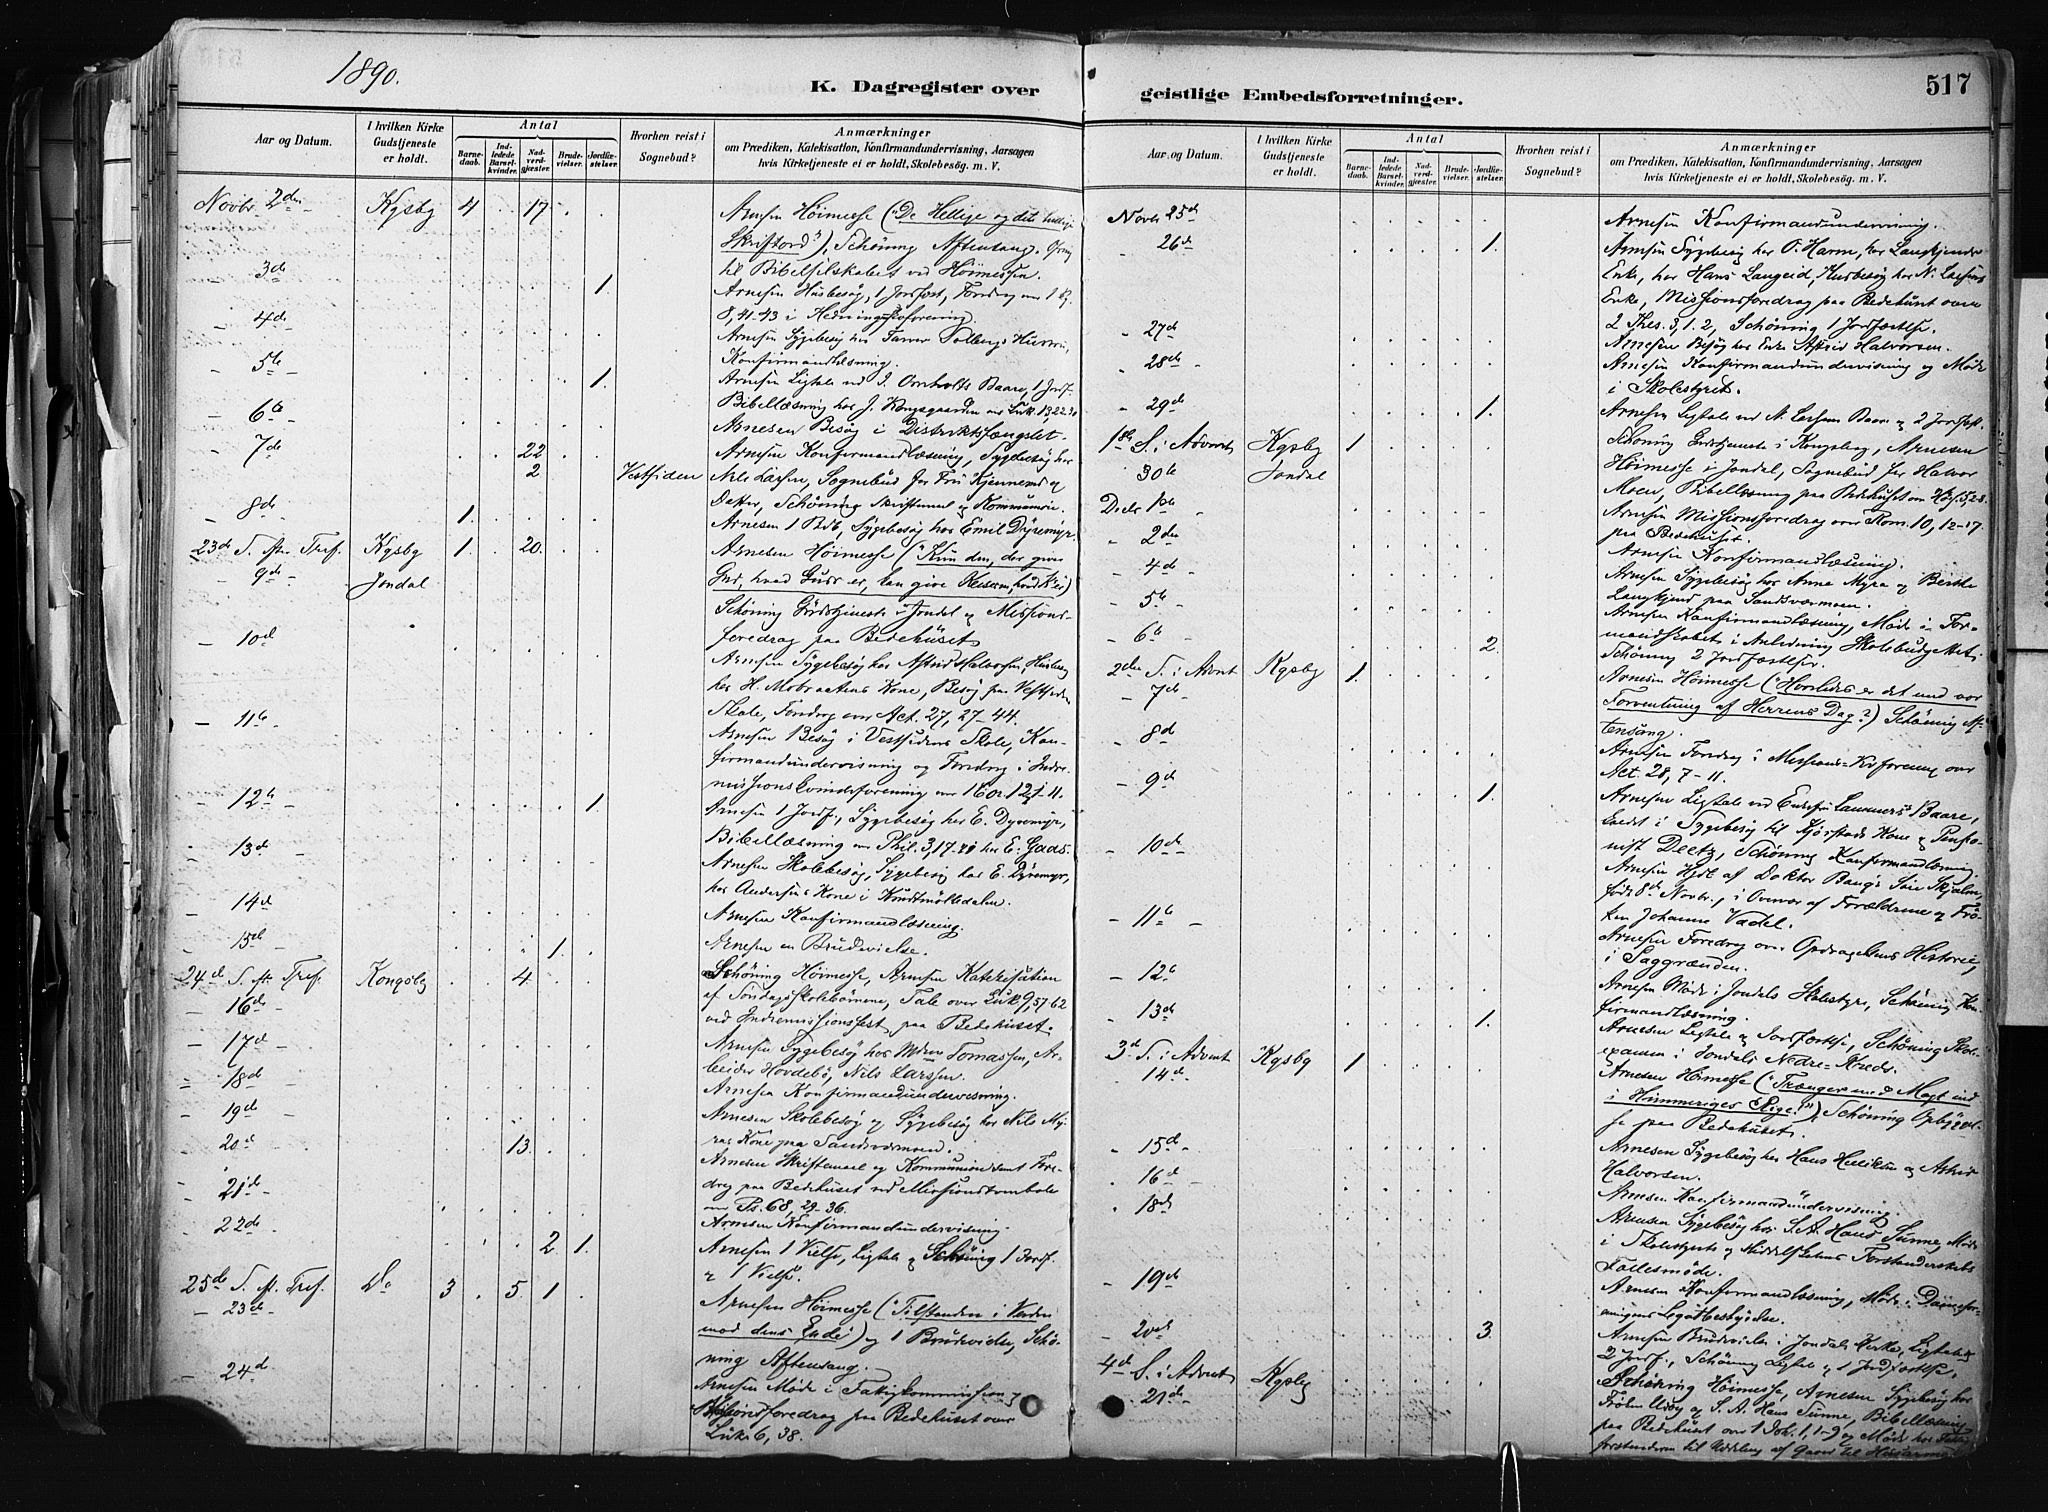 1890.
K. Dagregister over geistlige Embedsforretninger.
517
Aar og Datum.
I hvilken Kirke Gudstjeneste er holdt.
Antal
Barnedaab.
Indledede Barselkvinder.
Nadverdgjester.
Brudevielser.
Jordfæstelser.
Hvorhen reist i Sognebud?
Anmærkninger
om Prædiken, Katekisation, Konfirmandundervisning, Aarsagen
hvis Kirketjeneste ei er holdt, Skolebesøg. m. V.
Novbr 2den Kgsbg 4 17 Arnesen Høimesse ("De Hellige og det hellige
Skriftord"), Schöning Aftensang.
til Bibelselskabet ved Høimessen.
3de 1. Arnesen Husbesøg, 1 Jordfæst, Foredrag over
8, 41-43 i Hedningeforening.
4de Arnesen Sygebesøg hos Farver Solbergs Hustru,
Konfirmandlæsning.
5te 1. Arnesen Ligtale ved J. Omholts Baare, 1 Jordf.
Bibellæsning hos J. Kongsgaarden over Luk. 19,22
6te Arnesen Besøg i Distriktsfængslet.
7de 22 Arnesen Konfirmandlæsning, Sygebesøg hos
2 Vestsiden Nils Larsen, Sognebud for Fru Kjennerud og
Datter, Schöning Skriftemaal og Kommunion.
8de 1. Arnesen 1 Brdb, Sygebesøg hos Emil Dyremyr.
23de S. eft. Tref. Kgsbg 1. 20. Arnesen Høimesse ("Kun den, der giver
9de Jondal Gud, hvad Guds er, kan give Keiseren, hvad K's er)
Schöning Gudstjeneste i Jondal og Missions-
foredrag paa Bedehuset
10de Arnesen Sygebesøg hos Astrid Halvorsen, Husbesøg
hos H. Mobraatens Kone, Besøg paa Vestsidens
Skole, Foredrag over Act. 27, 27-44.
11te Arnesen Besøg i Vestsidens Skole, Kon-
firmandundervisning og Foredrag i Indre-
missionskvindeforening over 1 Cor. 12, 1-11.
12te 1. Arnesen 1 Jordf., Sygebesøg hos E. Dyremyr,
Bibellæsning over Phil. 3, 17-21 hos E. Gaas.
13de Arnesen Skolebesøg, Sygebesøg hos E. Dyremyr,
hos Andersens Kone i Knudtmølledalen.
14de Arnesen Konfirmandlæsning.
15de 1. Arnesen en Brudevielse.
24de S. eft. Tref. Kongsbg 4. Schöning Høimesse, Arnesen Katekisation
16de af Søndagsskolebørnene, Tale over Luk. 9, 57-62
ved Indremissionsfest paa Bedehuset.
17de Arnesen Sygebesøg hos Mdm Tomassen, Ar-
beider Hovdebø, Nils Larssen.
18de Arnesen Konfirmandundervisning.
19de Arnesen Skolebesøg og Sygebesøg hos Nils My-
ras Kone paa Sandsværmoen.
20de 13. Arnesen Skriftemaal og Kommunion samt Fore-
drag paa Bedehuset ved Missionstombola
over Ps. 68, 29-36.
21de Arnesen Konfirmandundervisning.
22de 2. 1. Arnesen 1 Vielse, Ligtale og Schöning 1 Jordf.
og 1 Vielse.
25de S. eft. Tref. Do 3 5. 1 Arnesen Høimesse ("Tilstanden i Verden
23de mod dens Ende") og 1 Brudevielse, Schö-
ning Aftensang.
24de Arnesen Møde i Fattigkommissionen og
Missionsforedrag paa Bedehuset over
Luk. 6, 38.
Aar og Datum.
I hvilken Kirke Gudstjeneste er holdt.
Antal
Barnedaab.
Indledede Barselkvinder.
Nadverdgjester.
Brudevielser.
Jordfæstelser.
Hvorhen reist i Sognebud?
Anmærkninger
om Prædiken, Katekisation, Konfirmandundervisning, Aarsagen
hvis Kirketjeneste ei er holdt, Skolebesøg. m. V.
Novbr 25de Arnesen Konfirmandundervisning.
26de 1. Arnesen Sygebesøg hos O. Havne, hos Langkjends
Enke, hos Hans Langeid, Husbesøg hos N. Larsens
Enke, Missionsforedrag paa Bedehuset over
2 Thes. 3, 1-2, Schöning 1 Jordfæstelse.
27de Arnesen Besøg hos Enke Astrid Halvorsen.
28de Arnesen Konfirmandundervisning og Møde
i Skolestyret.
29de 1. Arnesen Ligtale ved N. Larsens Baare og 2 Jordfæst.
1ste S. i Advent Kgsbg 1 Schöning Gudstjeneste i Kongsberg, Arnesen
30te Jondal Høimesse i Jondal, Sognebud for Halvor
Moen, Bibellæsning paa Bedehuset over
Decbr 1ste Arnesen Missionsforedrag over Rom. 10, 12-17
paa Bedehuset.
2den Arnesen Konfirmandlæsning.
4de Arnesen Sygebesøg hos Anne Myra og Berthe
Langkjend paa Sandsværmoen.
5te Arnesen Konfirmandlæsning, Møde i For-
6te 2. mandskabet i Anledning Skolebudgettet.
Schöning 2 Jordfæstelser.
2den S. i Advent Kgsbg 1. Arnesen Høimesse ("Hvorledes er det med vor
7de Forventning af Herrens Dag?") Schöning Af-
tensang.
8de Arnesen Foredrag i Missions-Kvforening over
Act. 28, 7-11.
9de 1. Arnesen Ligtale ved Enkefru Lammers's Baare,
kaldt i Sygebesøg til Kjørstads Kone og Pensio-
nist Deetz, Schöning Konfirmandlæsning.
10de Arnesen Hjdb af Doktor Bangs Søn Skjalm,
født 8de Novbr, i Overvær af Forældrene og Frø-
ken Johanne Vadel.
11te Arnesen Foredrag over Opdragelsens Historie,
i Saggrænden.
12te Arnesen Møde i Jondals Skolestyre, Schöning Kon-
firmandlæsning.
13de 1. Arnesen Ligtale og Jordfæstelse, Schöning Skole-
examen i Jondals Nedre-Kreds.
3de S. i Advent Kgsbg 1 Arnesen Høimesse ("Trænger med Magt ind
14de i Himmeriges Rige!") Schöning Opbyggel-
se paa Bedehuset.
15de Arnesen Sygebesøg hos Hans Helliksen og Astrid
Halvorsen.
16de Arnesen Konfirmandundervisning.
18de Arnesen Sygebesøg hos S. A. Hans Sunne, Møde
i Skolestyrets og Middelskolens Forstanderskabs
Fællesmøde.
19de Arnesen Konfirmandlæsning, Møde i
Legatbestyrelse.
20de 3. Arnesen Brudevielse i Jondals Kirke, Ligtale og
2 Jordf., Schöning Ligtale og 1 Jordfæstelse.
4de S. i Advent Kgsbg Schöning Høimesse, Arnesen Sygebesøg hos
21de Frøken og S. A. Hans Sunne, Bibellæsning
paa Bedehuset over 1 Joh. 1, 1-9 og Møde hos
forstanderen til Uddeling af Gaver til